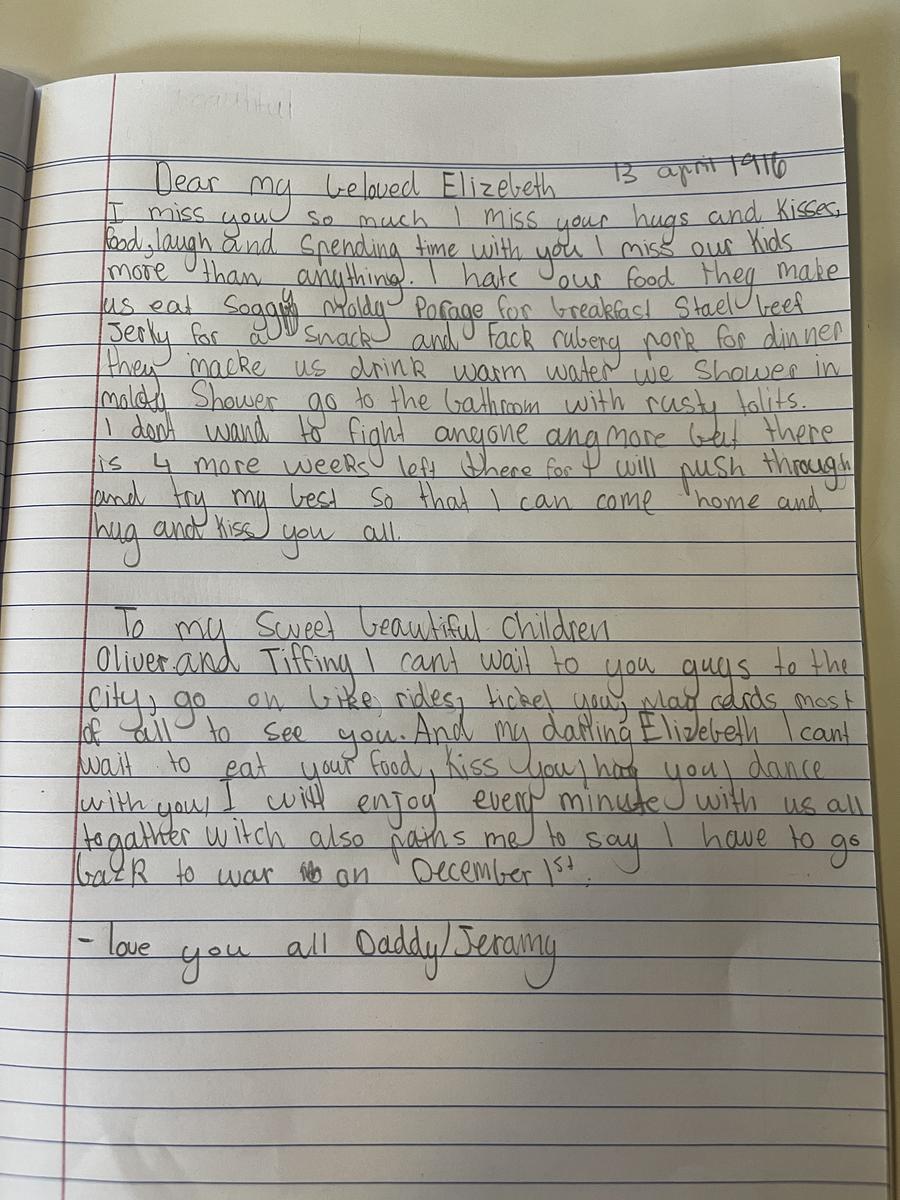 13 april 1916
Dear my beloved Elizebeth
I miss you so much I miss your hugs and kisses,
food, laugh and spending time with you I miss our kids
more than anything. I hate our food they make
us eat soggy moldy Porage for breakfast Stael beef
Jerky for a snack and Fack rubery pork for dinner
they macke us drink warm water we shower in
moldy Shower go to the bathroom with rusty tolits.
I dont wand to fight anyone anymore but there
is 4 more weeks left there for I will push through
and try my best so that I can come home and
hug and kiss you all.
To my Sweet beautiful children
Oliver and Tiffiny I cant wait to you guys to the
City, go on bike rides, tickel you, play cards most
of all to see you. And my darling Elizebeth I cant
wait to eat your food, kiss you, hag you, dance
with you, I will enjoy every minute with us all
togather witch also pains me to say I have to go
back to war on December 1st.
- love you all Daddy/Jeramy